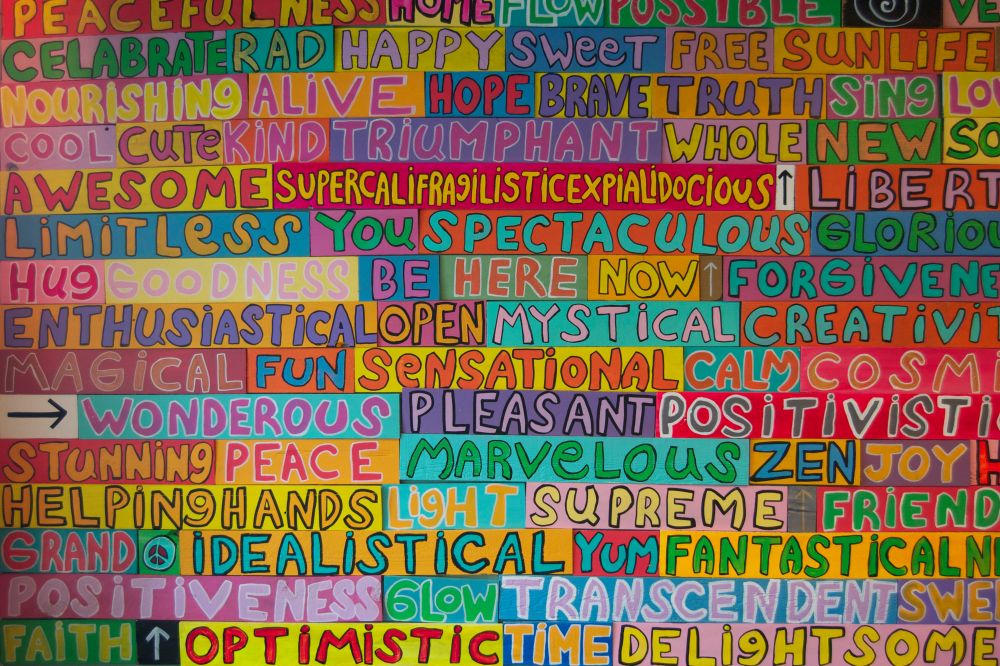 PEACEFULNESS HOME FLOW POSSIBLE
CELABRATE RAD HAPPY SWEET FREE SUN LIFE
NOURISHING ALIVE HOPE BRAVE TRUTH SING
COOL CUTE KIND TRIUMPHANT WHOLE NEW
AWESOME SUPERCALIFRAGILISTICEXPIALIDOCIOUS ↑ LIBERT
LIMITLESS YOU SPECTACULOUS GLORIOU
HUG GOODNESS BE HERE NOW ↑ FORGIVENE
ENTHUSIASTICAL OPEN MYSTICAL CREATIVIT
MAGICAL FUN SENSATIONAL CALM COSM
→ WONDEROUS PLEASANT POSITIVISTI
STUNNING PEACE MARVELOUS ZEN JOY H
HELPINGHANDS LIGHT SUPREME ↑ FRIEND
GRAND ☮ IDEALISTICAL YUM FANTASTICALN
POSITIVENESS GLOW TRANSCENDENT SWE
FAITH ↑ OPTIMISTIC TIME DELIGHTSOME